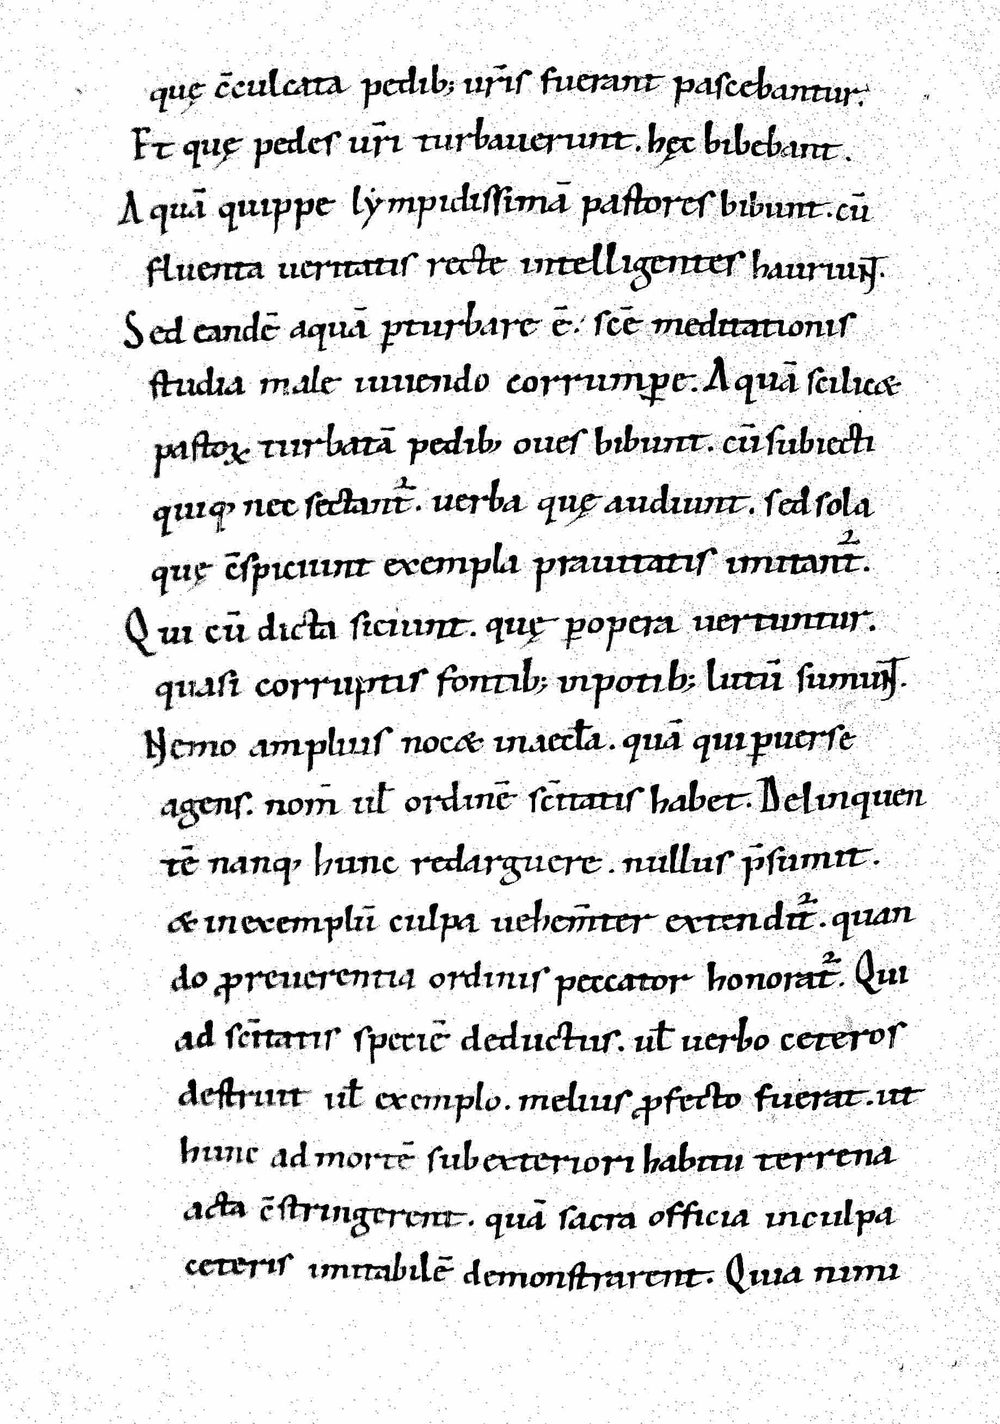 quę c̄culcata pedib; ur̄is fuerant pascebantur.
Et quę pedes ur̄i turbauerunt. hęc bibebant.
Aquā quippe lẏmpidissimā pastores bibunt. cū
fluenta ueritatis recte intelligentes hauriuNT.
Sed eandē aquā ꝑturbare ē. sc̄e meditationis
studia male uiuendo corrumꝑe. Aquā scilicæ
pastoꝝ turbatā pedib; oues bibunt. cū subiecti
quiq; nec sectant᷑. uerba quę audiunt. sed sola
quę c̄spiciunt exempla prauitatis imitant᷑.
Qui cū dicta siciunt. quę ꝑ opera uertuntur.
quasi corruptis fontib; in potib; lutū sumuNT.
Nemo amplius nocæ in aeccl̄a. quā qui ꝑuerse
agens. nom̄ ul̄ ordinē sc̄itatis habet. Delinquen
tē nanq; hunc redarguere. nullus p̄sumit.
& in exemplū culpa uehem̄ter extendit᷑. quan
do ꝓ reuerentia ordinis peccator honorat᷑. Qui
ad sc̄itatis speciē deductus. ul̄ uerbo ceteros
destruit ul̄ exemplo. melius ꝓfecto fuerat. ut
hunc ad mortē sub exteriori habitu terrena
acta c̄stringerent. quā sacra officia in culpa
ceteris imitabilē demonstrarent. Quia nimi